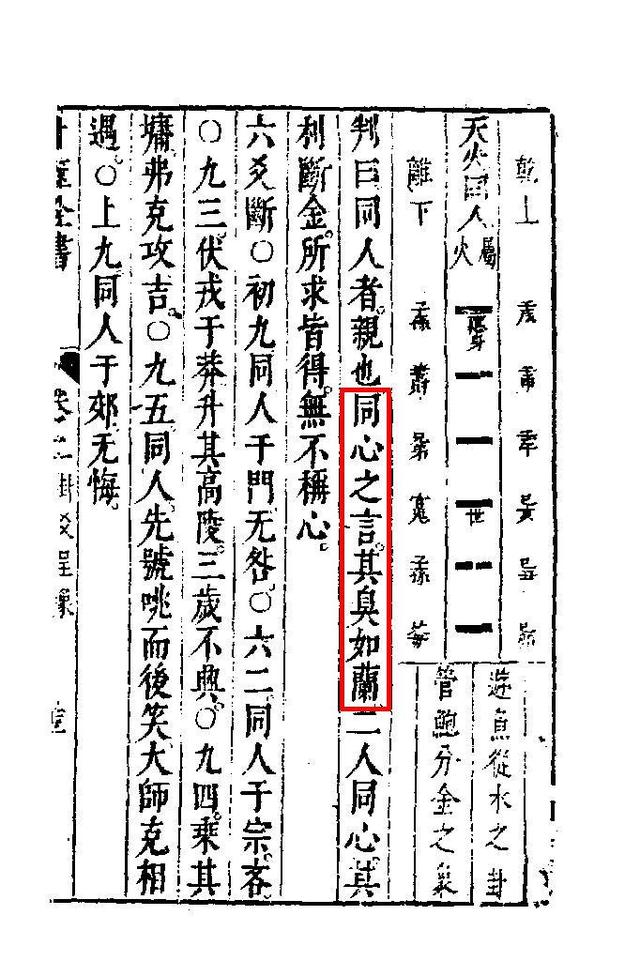 乾上
遊魚從水之卦
天火同人 屬火
世
管鮑分金之象
離下
判曰同人者親也同心之言其臭如蘭二人同心其
利斷金所求皆得無不稱心
六爻斷〇初九同人于門无咎〇六二同人于宗吝
〇九三伏戎于莽升其高陵三歲不興〇九四乘其
墉弗克攻吉〇九五同人先號咷而後笑大師克相
遇〇上九同人于郊无悔